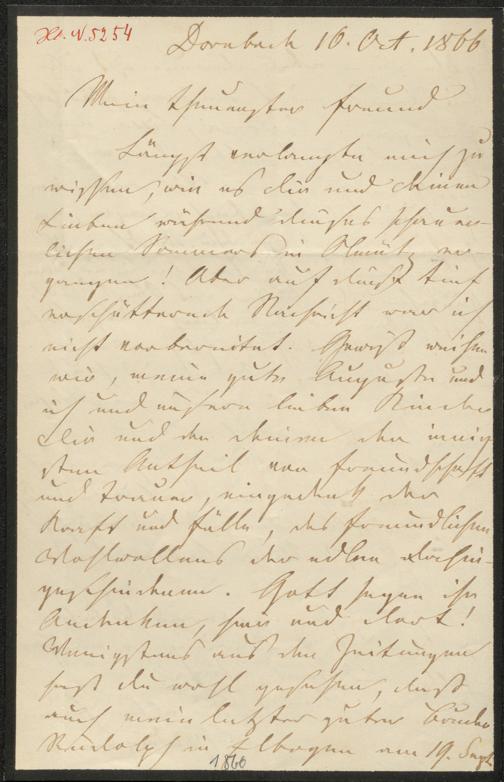 H. N. 5254
Dornbach 16. Oct. 1866
Mein theuerster Freund
Längst verlangte mich zu
wissen, wie es dir und deinen
Lieben während dieses schauer-
lichen Sommers in Olmütz er
gangen! Aber auf diese tief
erschütternde Nachricht war ich
nicht vorbereitet. Gewiß weihen
wir, meine gute Auguste und
ich und unsere lieben Kinder
dir und den deinen den innig
sten Antheil von Freundschaft
und Trauer, eingedenk der
Kraft und Fülle, des freundlichen
Wohlwollens der edlen Dahin-
geschiedenen. Gott segne ihr
Andenken, hier und dort!
Wenigstens aus den Zeitungen
hast du wohl gesehen, daß
auch mein letzter guter Bruder
Rudolph in Elbogen am 19. Sept.
1866